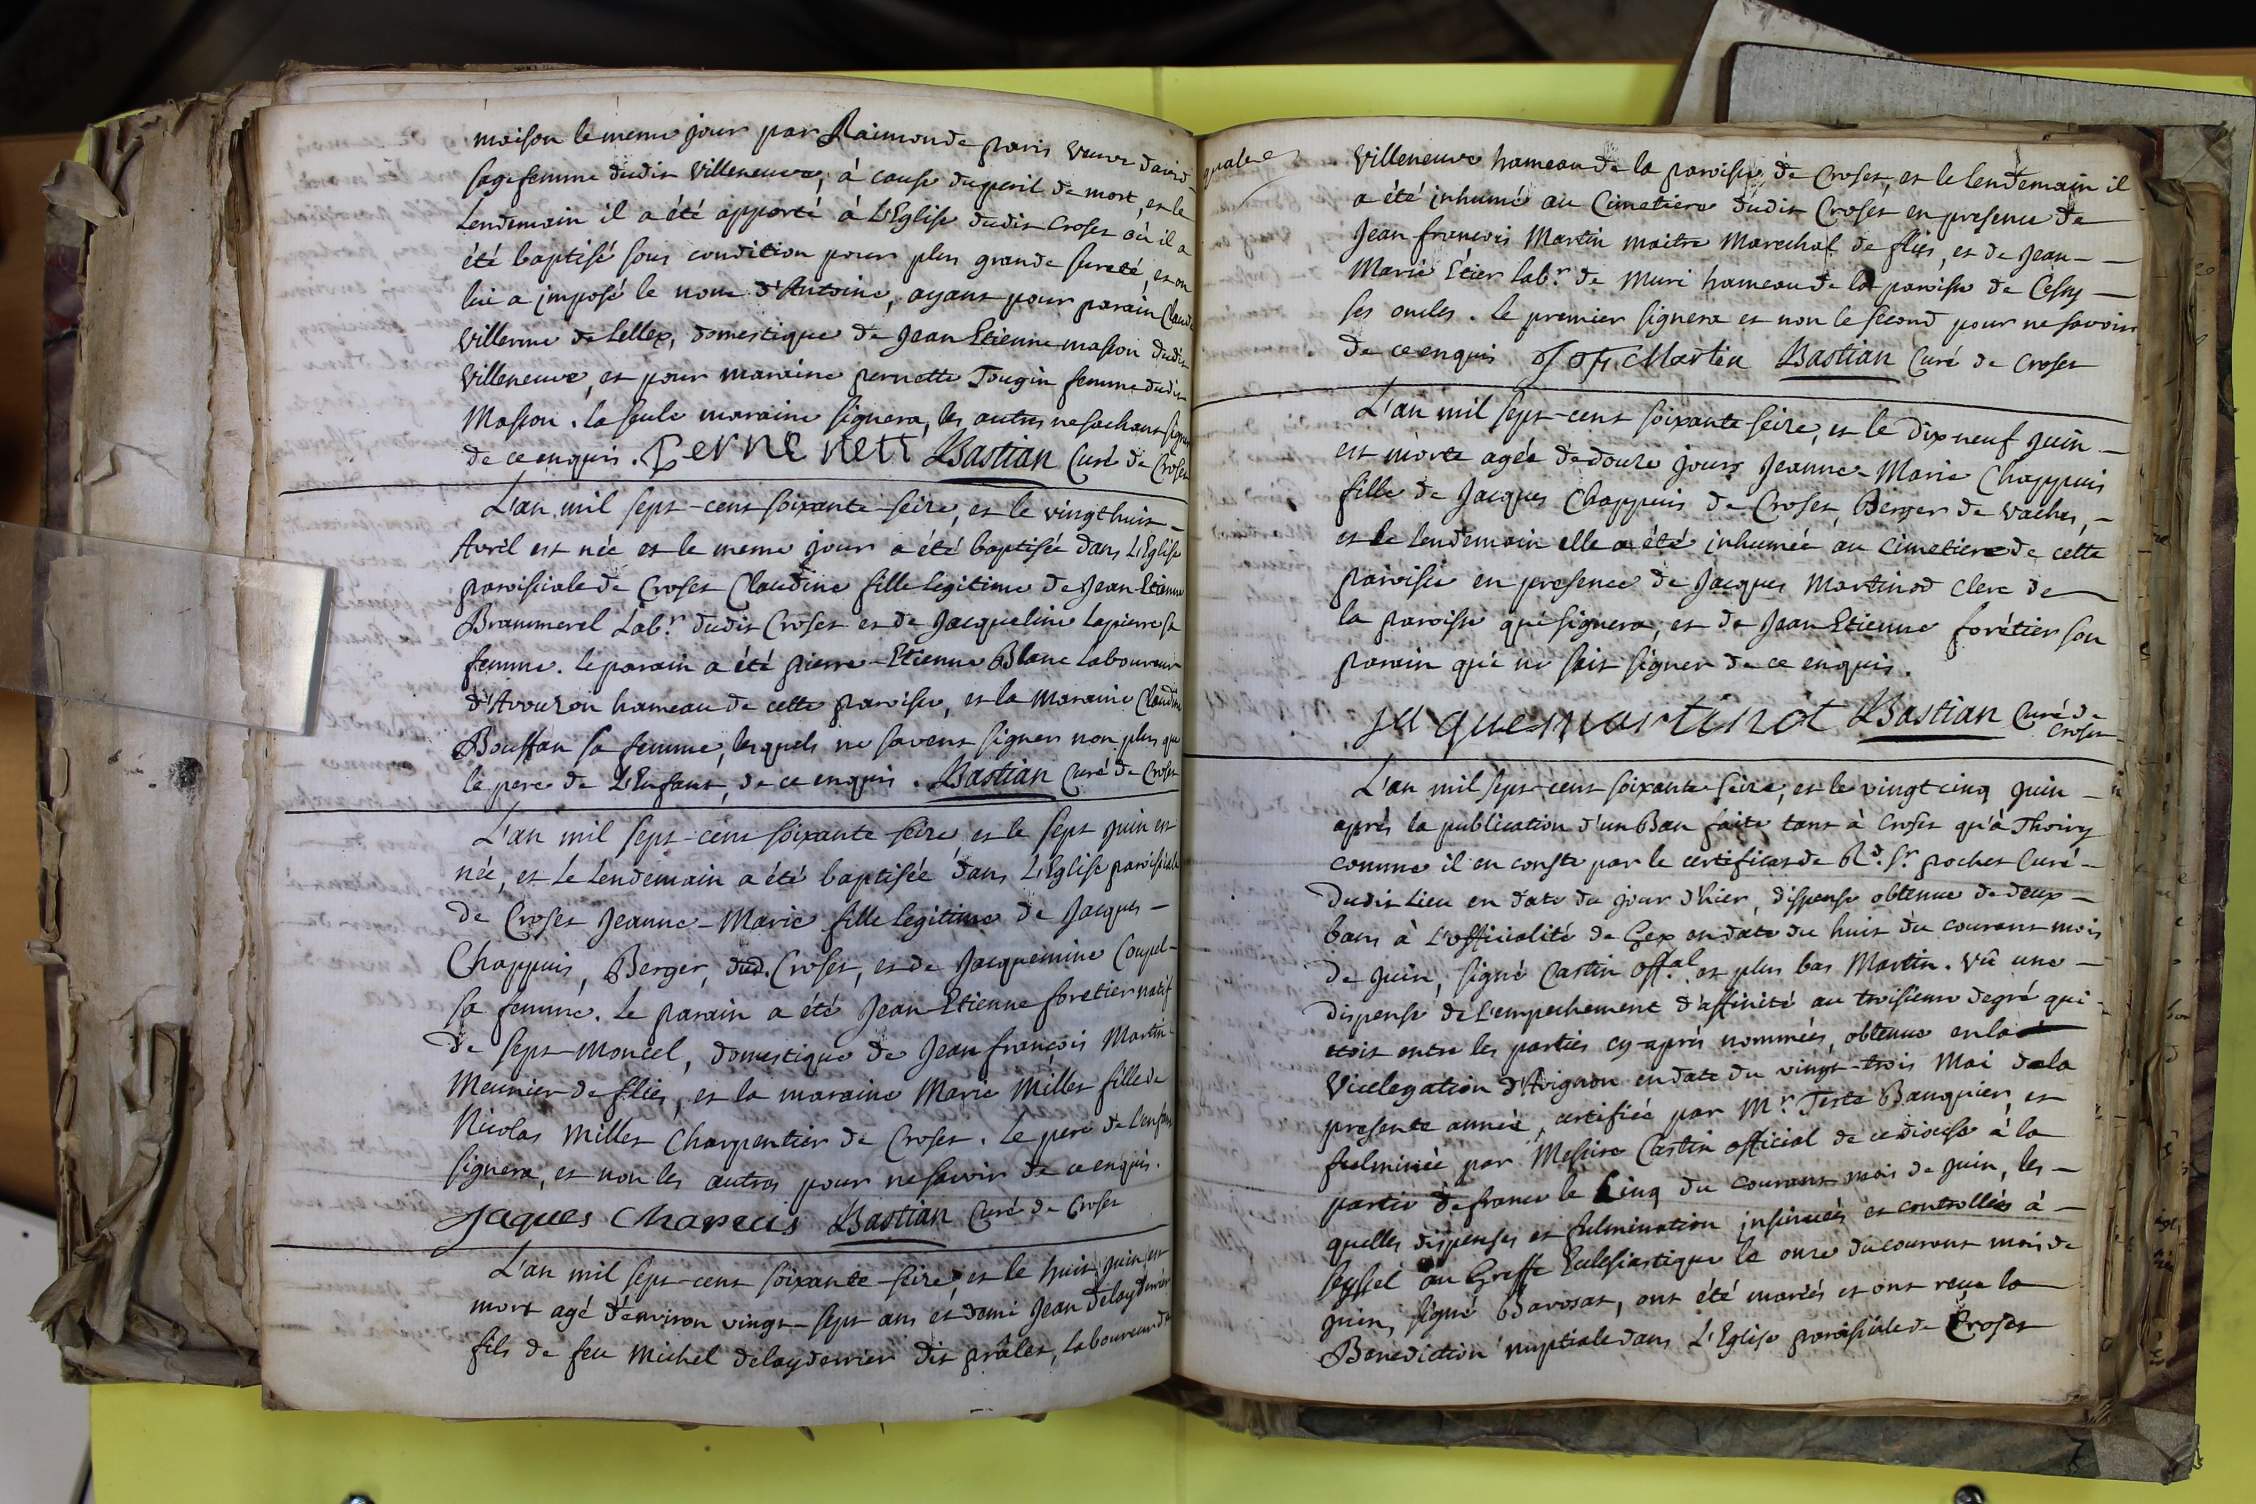 maison le meme jour par Raimonde paris veuve david
sagefemme dudit villeneuve, à cause du peril de mort, et le
Lendemain il a été apporté à L'Eglise dudit Croset où il a
été baptisé sous condition pour plus grande sureté, et on
lui a imposé le nom d'Antoine, ayant pour parain Claude
Villerme de Lellex, domestique de Jean Etienne masson dudit
Villeneuve, et pour maraine pernette Tougin femme dudit
Masson. la seule maraine signera, les autres ne sachant signer
de ce enquis. Bastian Curé de Croset
L'an mil sept-cent soixante-seize, et le vingthuit -
Avril est née et le meme jour a été baptisée dans L'Eglise
paroissiale de Croset Claudine fille legitime de Jean-Etienne
Brammerel Lab.r dudit Croset et de Jacqueline Lapierre sa
femme. le parain a été pierre-Etienne Blanc Laboureur
d'Avouzon hameau de cette paroisse, et la Maraine Claudine
Bouffan sa femme, lesquels ne savent signer non plus que
le pere de L'Enfant, de ce enquis. Bastian Curé de Croset
L'an mil sept-cent soixante-seize, et le sept juin est
née, et Le Lendemain a été baptisée dans L'Eglise paroissiale
de Croset Jeanne-Marie fille legitime de Jacques -
Chappuis, Berger, dud. Croset, et de Jacquemine Coupel -
sa femme. Le parain a été Jean-Etienne foretier natif
de Sept-moncel, domestique de Jean françois Martin
Meunier de flies, et la maraine Marie Millet fille de
Nicolas Millet Charpentier de Croset. Le pere de l'enfant
signera, et non les autres pour ne savoir de ce enquis.
Jaques Chapeus Bastian Curé de Croset
L'an mil sept-cent soixante-seize, et le huit juin est
mort agé d'environ vingt-sept ans et demi Jean delaydernier
fils de feu Michel delaydernier dit prâlet, laboureur de
Villeneuve hameau de la paroisse de Croset, et le lendemain il
a été inhumé au Cimetiere dudit Croset en presence de
Jean françois Martin maitre Marechal de flies, et de Jean -
Marie Etier Lab.r de Muri hameau de la paroisse de Cessy -
ses oncles. le premier signera et non le second pour ne savoir
de ce enquis Martin Bastian Curé de Croset
L'an mil sept-cent soixante seize, et le dix neuf juin -
est morte agée de douze jours Jeanne-Marie Chappuis
fille de Jacques Chappuis de Croset, Berger de vaches, -
et le Lendemain elle a été inhumée au cimetiere de cette
paroisse en presence de Jacques Martinod Clerc de
la paroisse qui signera, et de Jean Etienne forétier son
parain qui ne sait signer de ce enquis.
jaque martinot Bastian Curé de
Croset
L'an mil sept-cent soixante-seize, et le vingt cinq juin -
après la publication d'un Ban faite tant à Croset qu'à Thoiry
comme il en conste par le certificat de R.d S.r pochet Curé -
Dudit Lieu en date du jour d'hier, dispense obtenue de deux -
bans à L'officialité de Gex en date du huit du courant mois
de juin, signé Castin off.al et plus bas Martin. Vû une -
dispense de l'empechement d'affinité au troisieme degré qui -
etoit entre les parties cy-après nommées, obtenue en la
Vicelegation d'Avignon en date du vingt-trois Mai de la
presente année, certifiée par M.r Teste Banquier, et
fulminée par Messire Castin official de ce diocese à la
partie de france le Cinq du courant mois de juin, les -
quelles dispenses et fulmination insinuées et controllées à -
Seyssel au Greffe Eclesiastique le onze du courant mois de
juin, signé Bavosat, ont été mariés et ont reçu la
Benediction nuptiale dans L'Eglise paroissiale de Croset